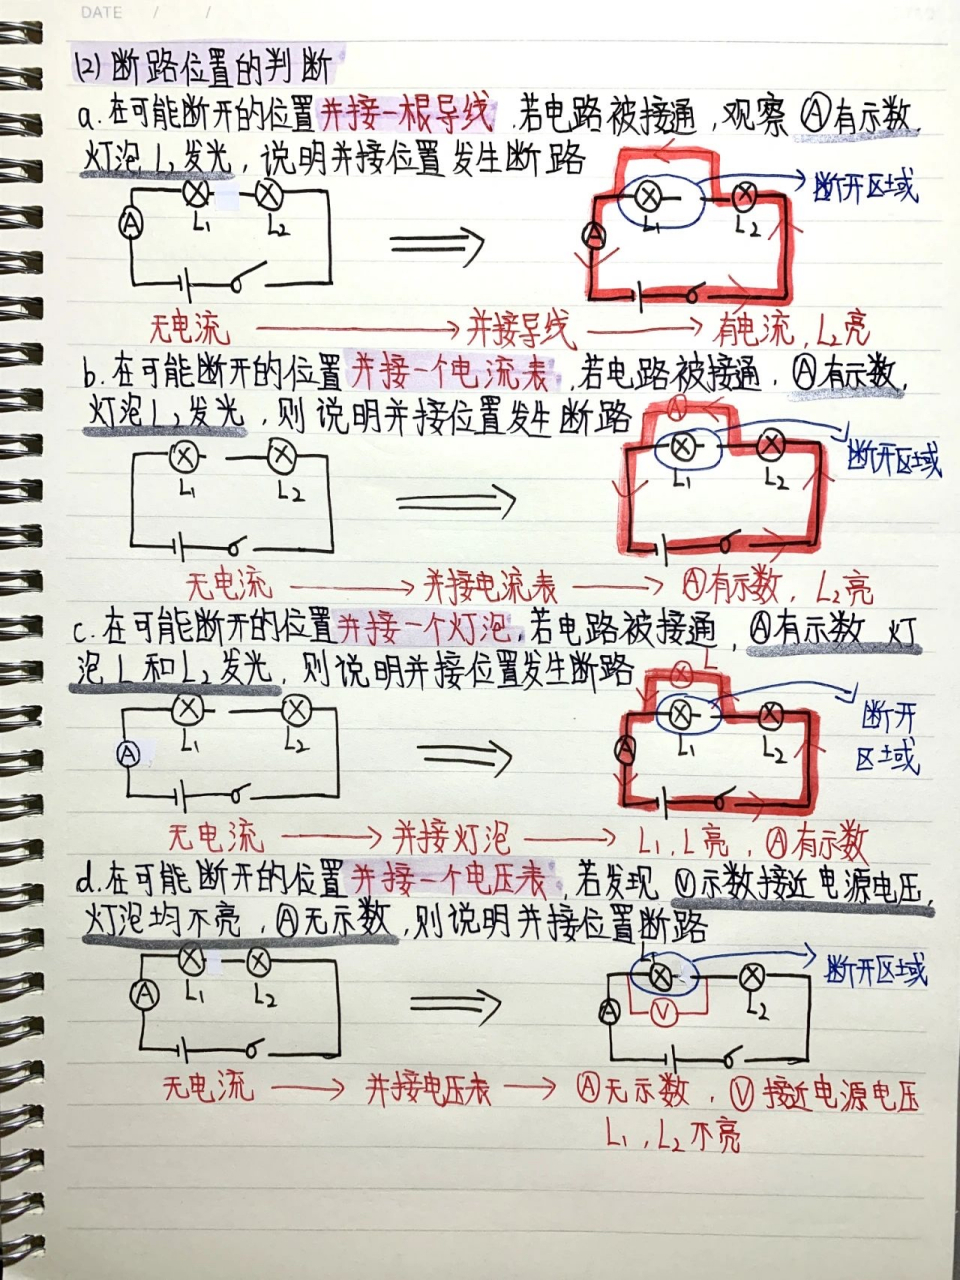 DATE / /
(2) 断路位置的判断
a. 在可能断开的位置并接一根导线,若电路被接通,观察Ⓐ有示数,
灯泡L₂发光,说明并接位置发生断路
断开区域
A
L₁
L₂
A
L₁
L₂
无电流 → 并接导线 → 有电流,L₂亮
b. 在可能断开的位置并接一个电流表,若电路被接通,Ⓐ有示数,
灯泡L₂发光,则说明并接位置发生断路
A
断开区域
L₁
L₂
L₁
L₂
无电流 → 并接电流表 → Ⓐ有示数,L₂亮
c. 在可能断开的位置并接一个灯泡,若电路被接通,Ⓐ有示数 灯
泡L和L₂发光,则说明并接位置发生断路
L
断开
区域
A
L₁
L₂
A
L₁
L₂
无电流 → 并接灯泡 → L₁,L亮,Ⓐ有示数
d. 在可能断开的位置并接一个电压表,若发现Ⓥ示数接近电源电压,
灯泡均不亮,Ⓐ无示数,则说明并接位置断路
L₁
断开区域
A
L₁
L₂
A
V
L₂
无电流 → 并接电压表 → Ⓐ无示数,Ⓥ接近电源电压
L₁,L₂不亮